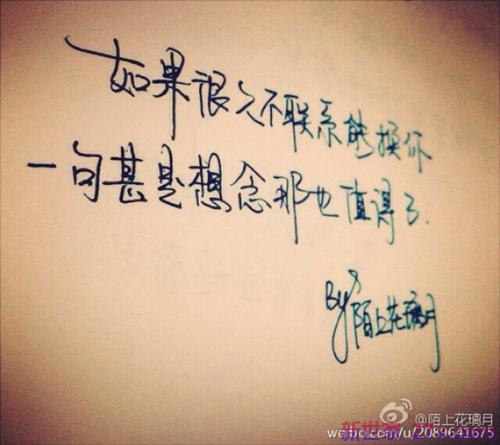 如果很久不联系能换你
一句甚是想念那也值得了.
By
陌上花璃月
@陌上花璃月
新世家
weibo.com/u/2089641675